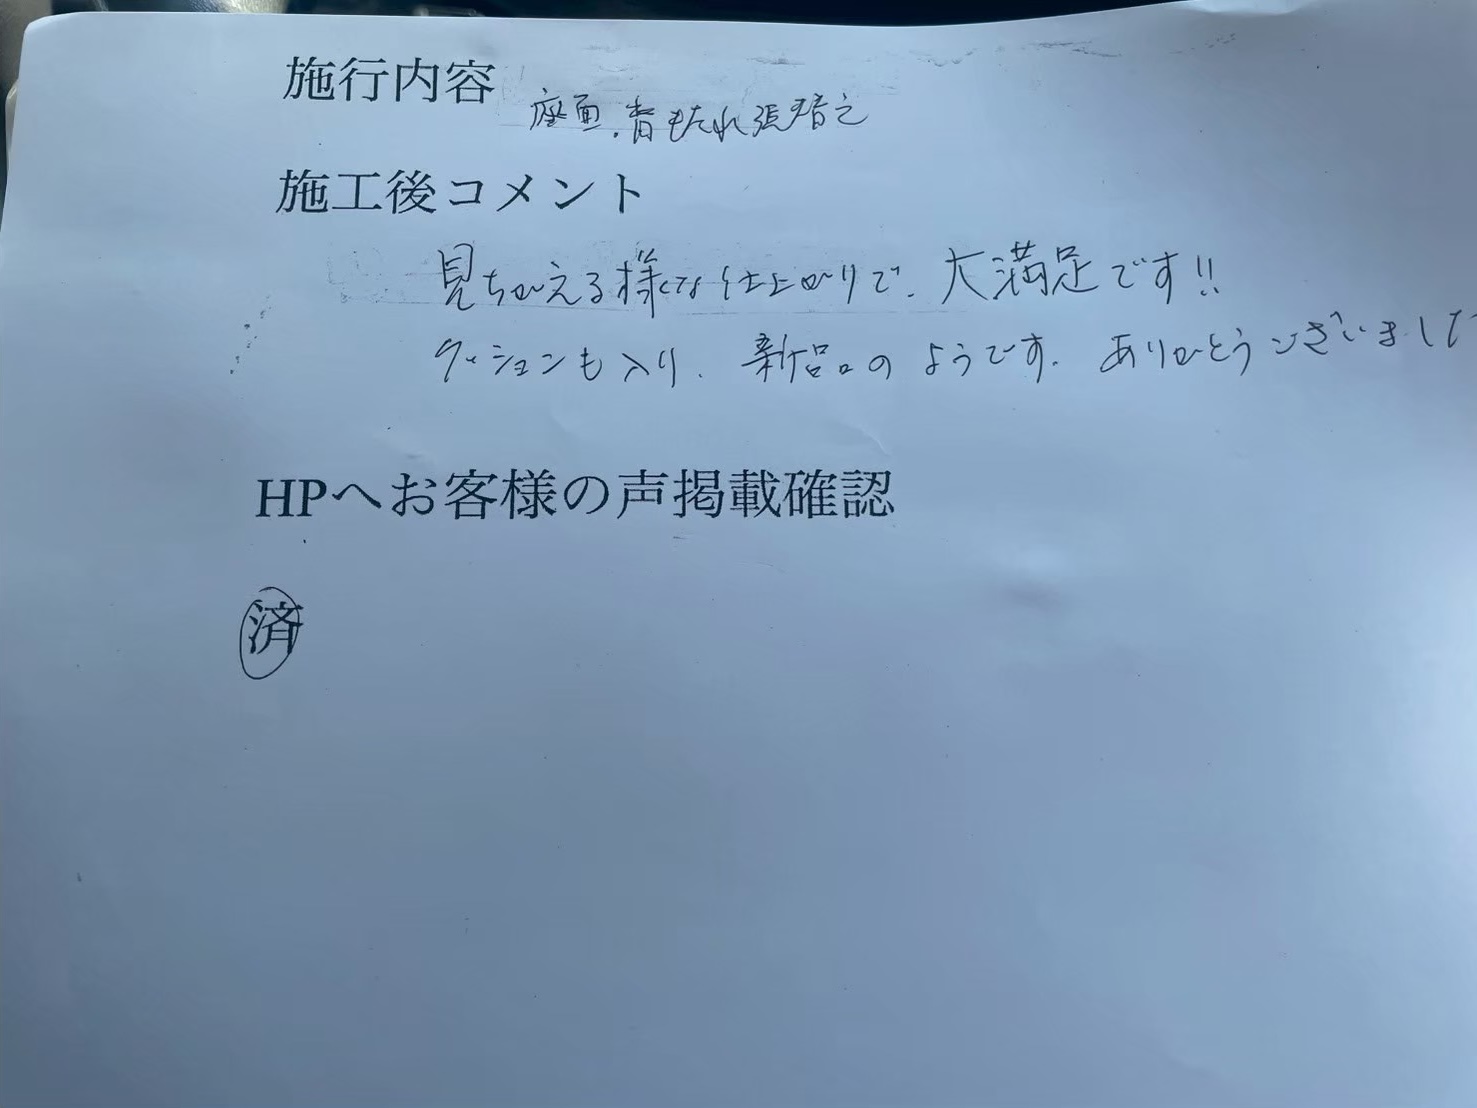 施行内容
座面.背もたれ張替え
施工後コメント
見ちがえる様な仕上がりで、大満足です!!
クッションも入り、新品のようです. ありがとうございました
HPへお客様の声掲載確認
済